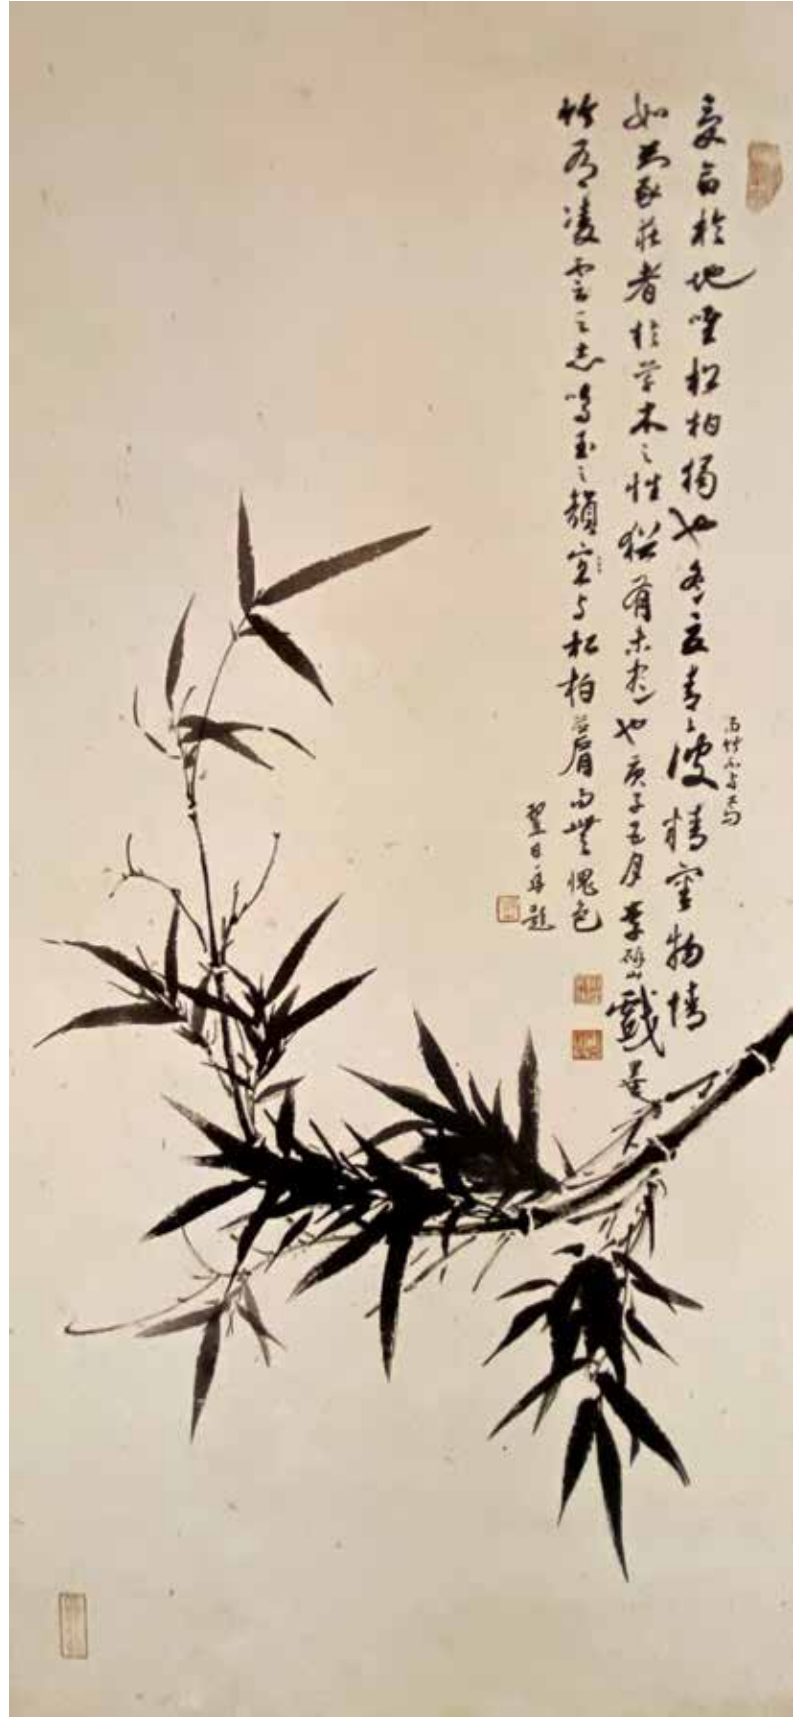 受命於地唯松柏獨也冬夏青〻彼精審物情
而竹不与焉句
如蒙莊者於草木之性猶有未盡也庚子五月李研山戲墨
竹有凌雲之志鳴玉之韻宜与松柏並肩而無愧色
翌日再題